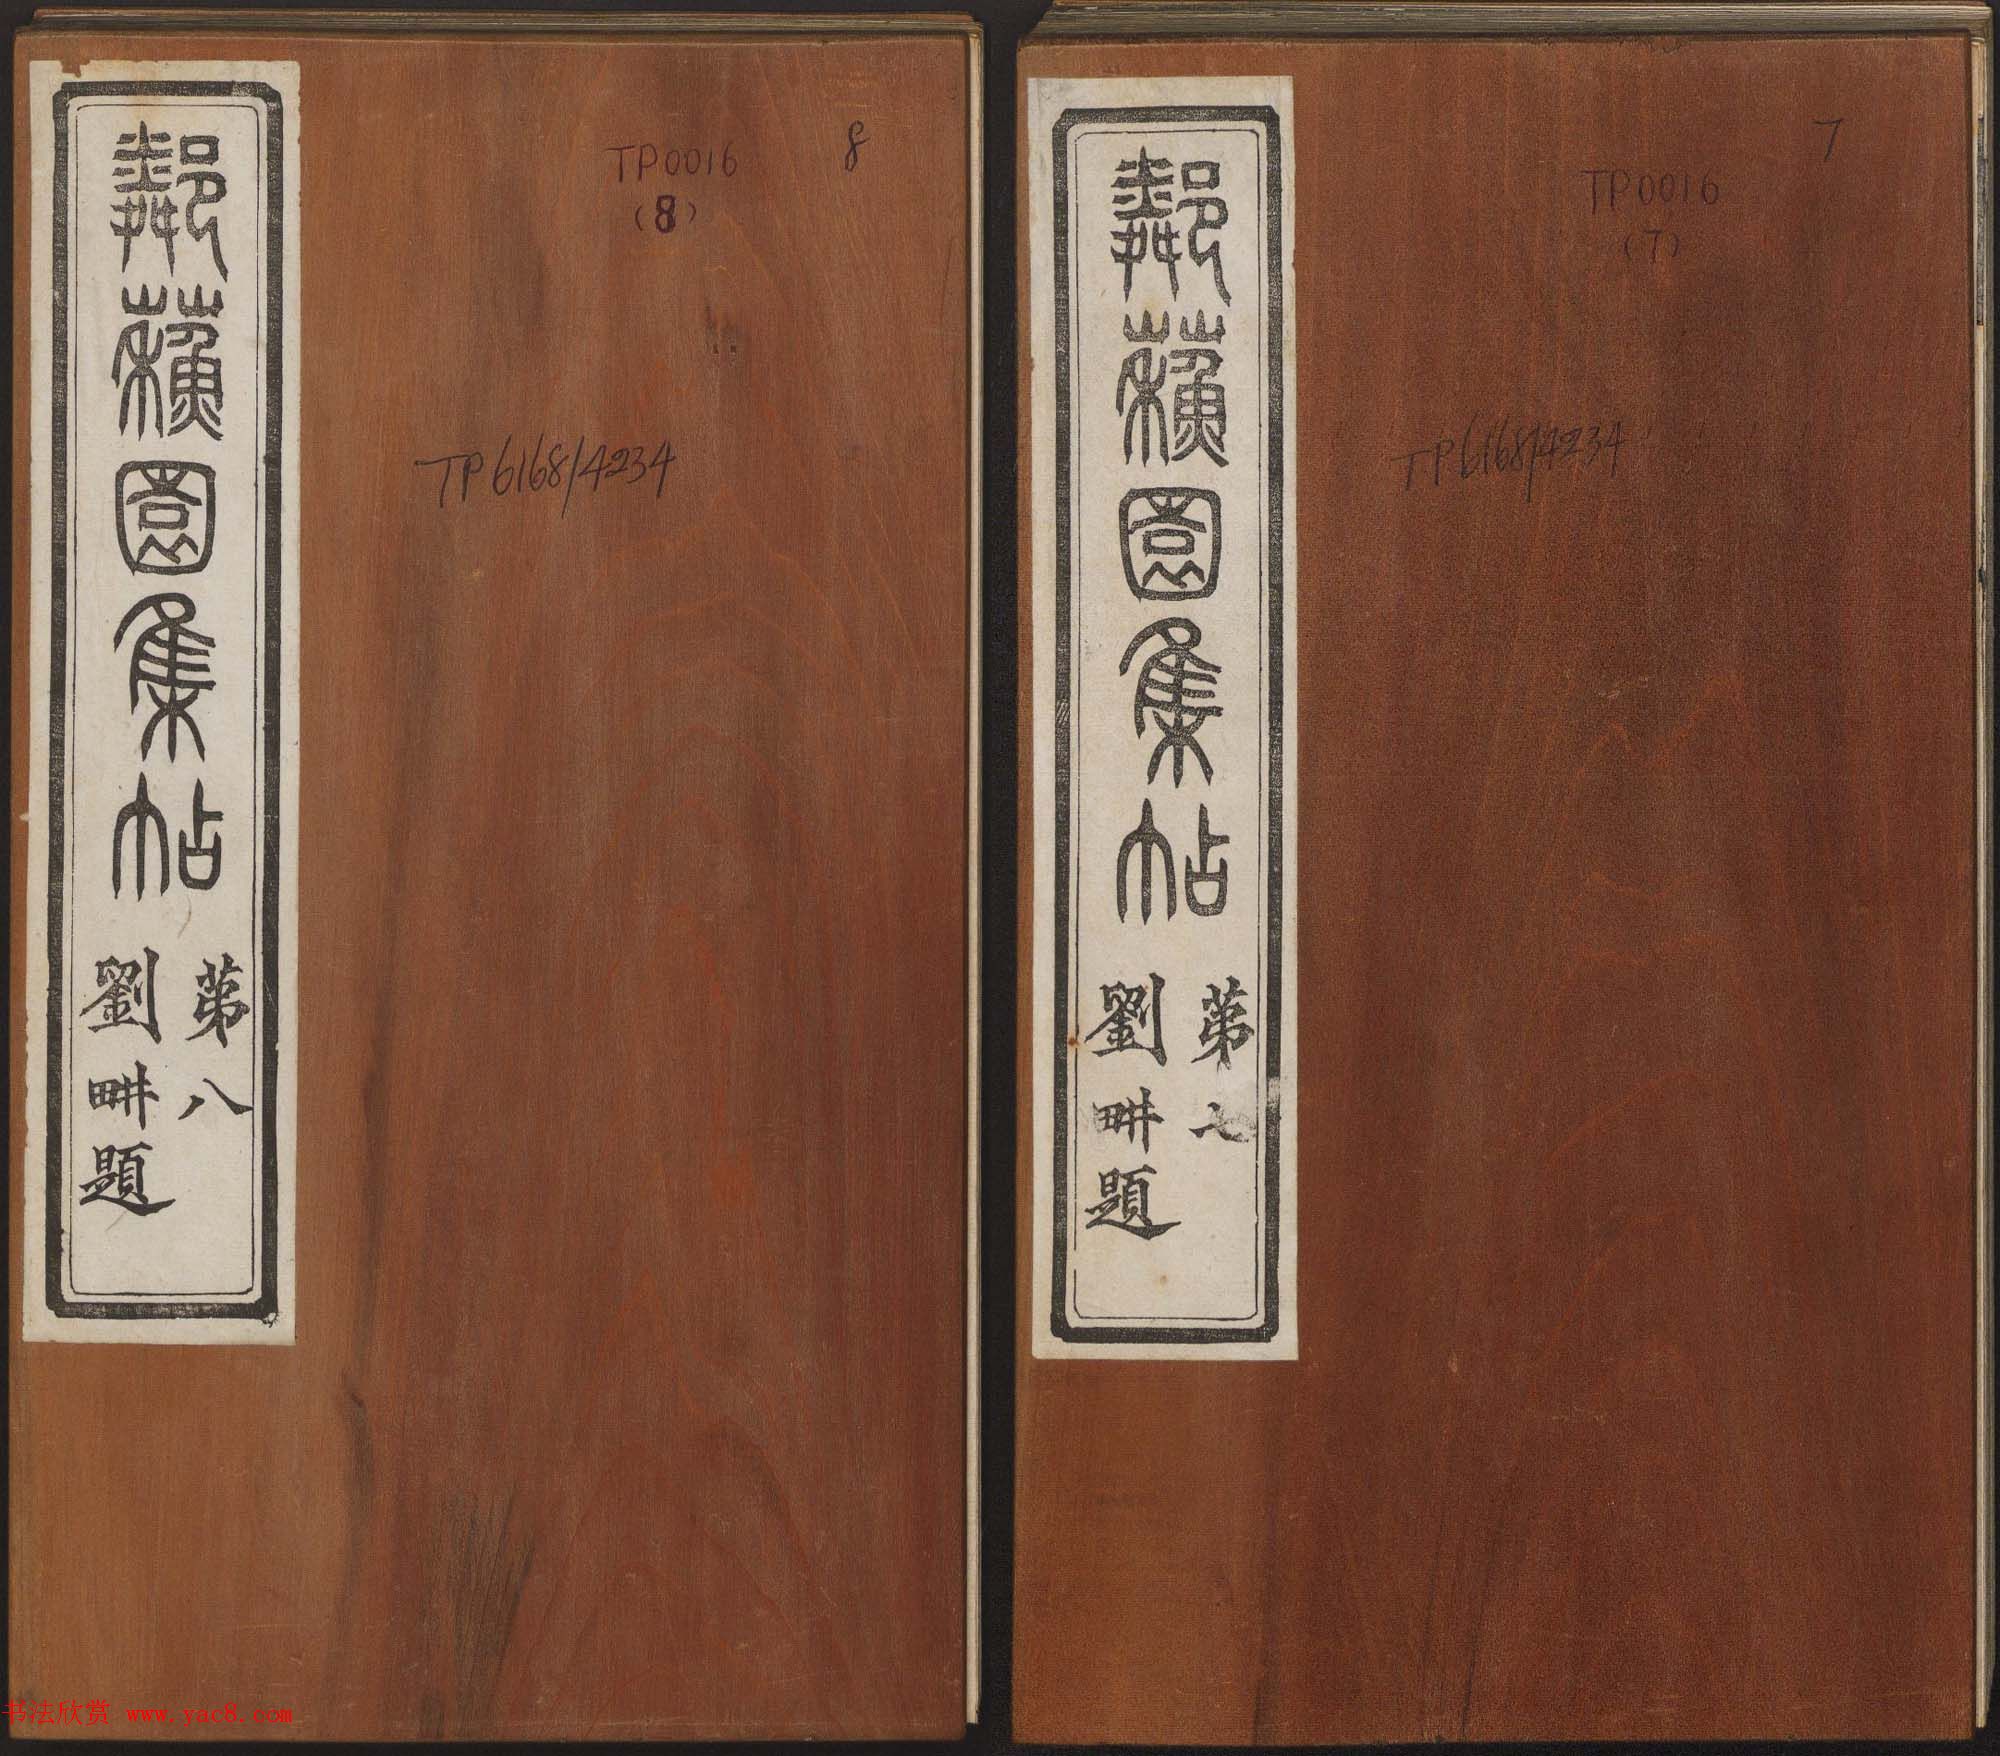 鄰蘓園集帖
第八
劉畊題
TP0016
(8)
8
TP6168/4234
鄰蘓園集帖
第七
劉畊題
TP0016
(7)
7
TP6168/4234
书法欣赏 www.yac8.com